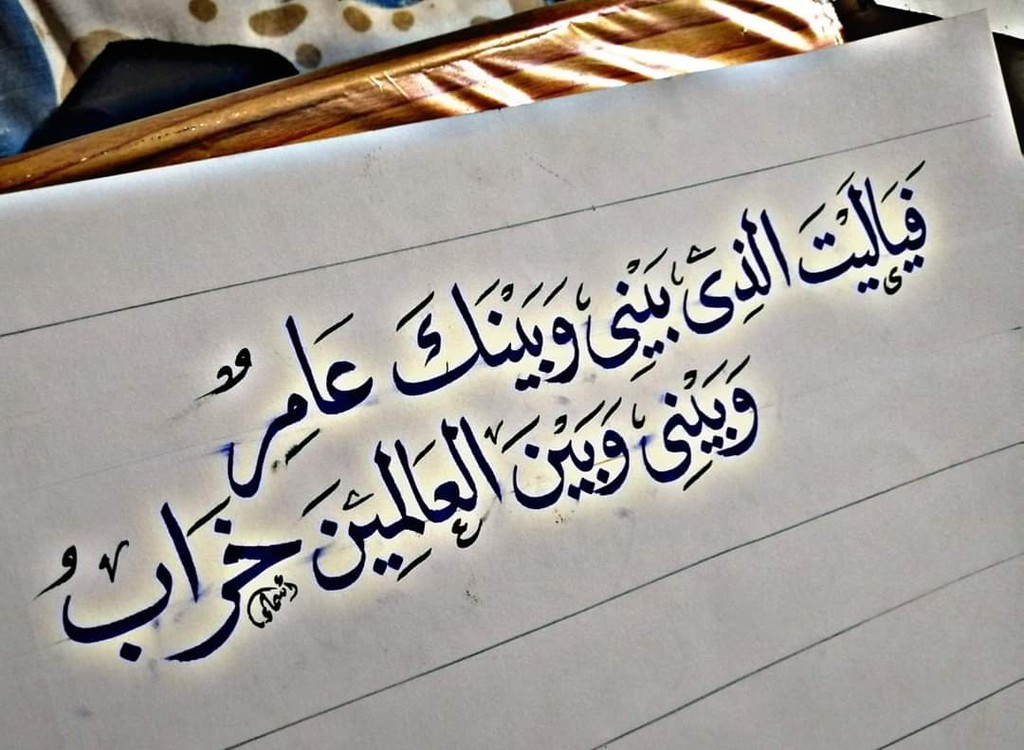 فَيَالَيْتَ الَّذِي بَيْنِي وَبَيْنَكَ عَامِرٌ
وَبَيْنِي وَبَيْنَ العَالَمِيْنَ خَرَابُ